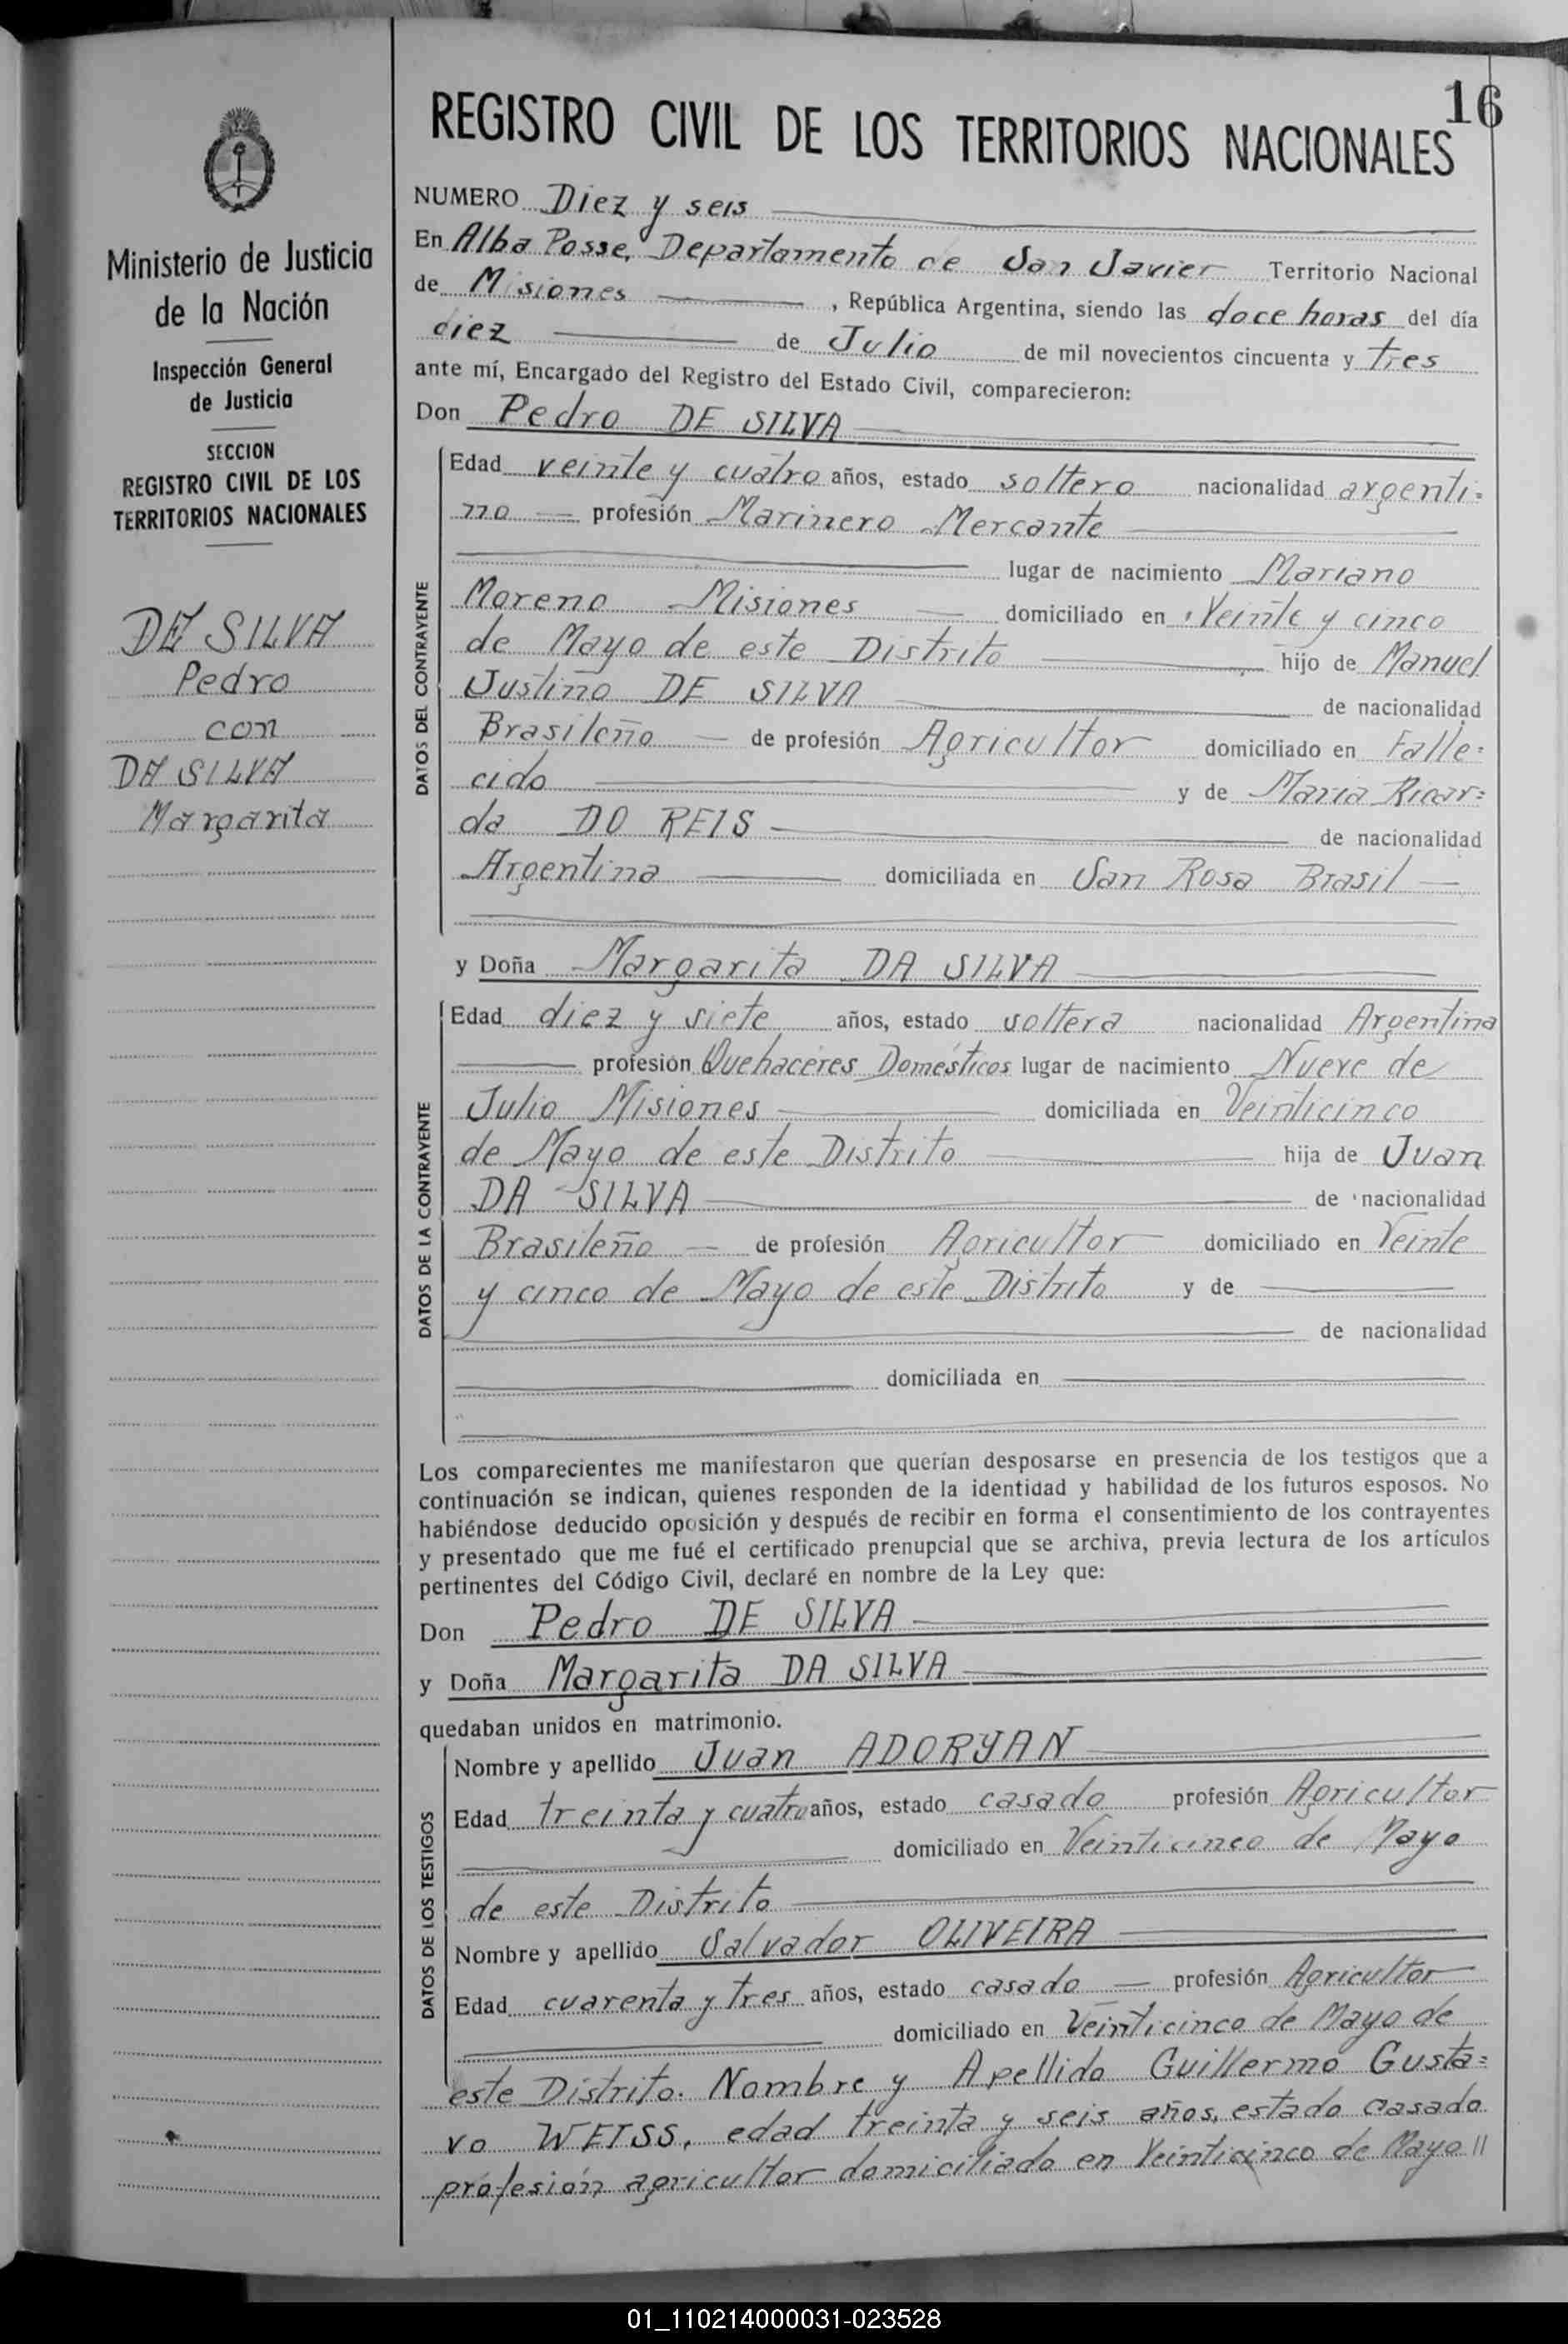 16
REGISTRO CIVIL DE LOS TERRITORIOS NACIONALES
Ministerio de Justicia
de la Nación
Inspección General
de Justicia
SECCION
REGISTRO CIVIL DE LOS
TERRITORIOS NACIONALES
DE SILVA
Pedro
con
DA SILVA
Margarita
NUMERO Diez y seis
En Alba Posse, Departamento de San Javier Territorio Nacional
de Misiones , República Argentina, siendo las doce horas del día
diez de Julio de mil novecientos cincuenta y tres
ante mí, Encargado del Registro del Estado Civil, comparecieron:
Don Pedro DE SILVA
DATOS DEL CONTRAYENTE
Edad veinte y cuatro años, estado soltero nacionalidad argenti=
no profesión Marinero Mercante
lugar de nacimiento Mariano
Moreno Misiones domiciliado en Veinte y cinco
de Mayo de este Distrito hijo de Manuel
Justino DE SILVA de nacionalidad
Brasileño de profesión Agricultor domiciliado en Falle=
cido y de Maria Ricar=
da DO REIS de nacionalidad
Argentina domiciliada en San Rosa Brasil
y Doña Margarita DA SILVA
DATOS DE LA CONTRAYENTE
Edad diez y siete años, estado soltera nacionalidad Argentina
profesión Quehaceres Domésticos lugar de nacimiento Nueve de
Julio Misiones domiciliada en Veinticinco
de Mayo de este Distrito hija de Juan
DA SILVA de nacionalidad
Brasileño de profesión Agricultor domiciliado en Veinte
y cinco de Mayo de este Distrito y de
de nacionalidad
domiciliada en
Los comparecientes me manifestaron que querían desposarse en presencia de los testigos que a
continuación se indican, quienes responden de la identidad y habilidad de los futuros esposos. No
habiéndose deducido oposición y después de recibir en forma el consentimiento de los contrayentes
y presentado que me fué el certificado prenupcial que se archiva, previa lectura de los artículos
pertinentes del Código Civil, declaré en nombre de la Ley que:
Don Pedro DE SILVA
y Doña Margarita DA SILVA
quedaban unidos en matrimonio.
DATOS DE LOS TESTIGOS
Nombre y apellido Juan ADORYAN
Edad treinta y cuatro años, estado casado profesión Agricultor
domiciliado en Veinticinco de Mayo
de este Distrito
Nombre y apellido Salvador OLIVEIRA
Edad cuarenta y tres años, estado casado profesión Agricultor
domiciliado en Veinticinco de Mayo de
este Distrito. Nombre y Apellido Guillermo Gusta=
vo WEISS, edad treinta y seis años, estado casado
profesión agricultor domiciliado en Veinticinco de Mayo //
01_110214000031-023528